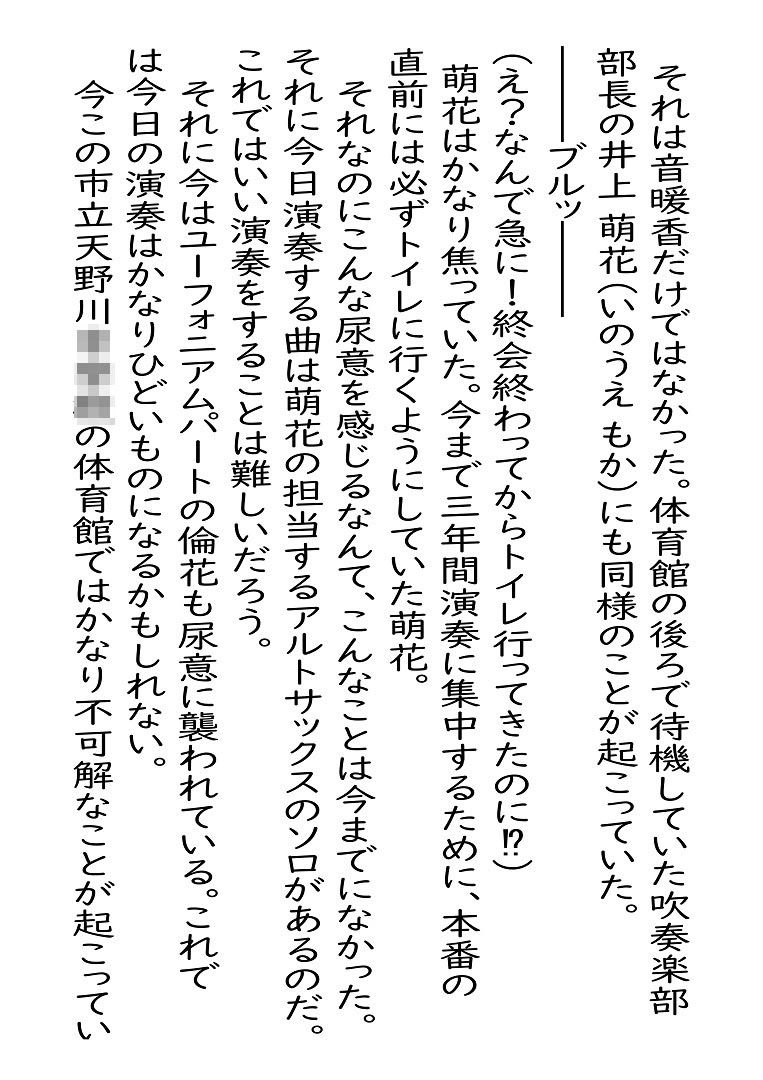 それは音暖香だけではなかった。体育館の後ろで待機していた吹奏楽部
部長の井上 萌花（いのうえ もか）にも同様のことが起こっていた。
―――ブルッ―――
（え？なんで急に！終会終わってからトイレ行ってきたのに⁉）
萌花はかなり焦っていた。今まで三年間演奏に集中するために、本番の
直前には必ずトイレに行くようにしていた萌花。
それなのにこんな尿意を感じるなんて、こんなことは今までになかった。
それに今日演奏する曲は萌花の担当するアルトサックスのソロがあるのだ。
これではいい演奏をすることは難しいだろう。
それに今はユーフォニアムパートの倫花も尿意に襲われている。これで
は今日の演奏はかなりひどいものになるかもしれない。
今この市立天野川の体育館ではかなり不可解なことが起こってい